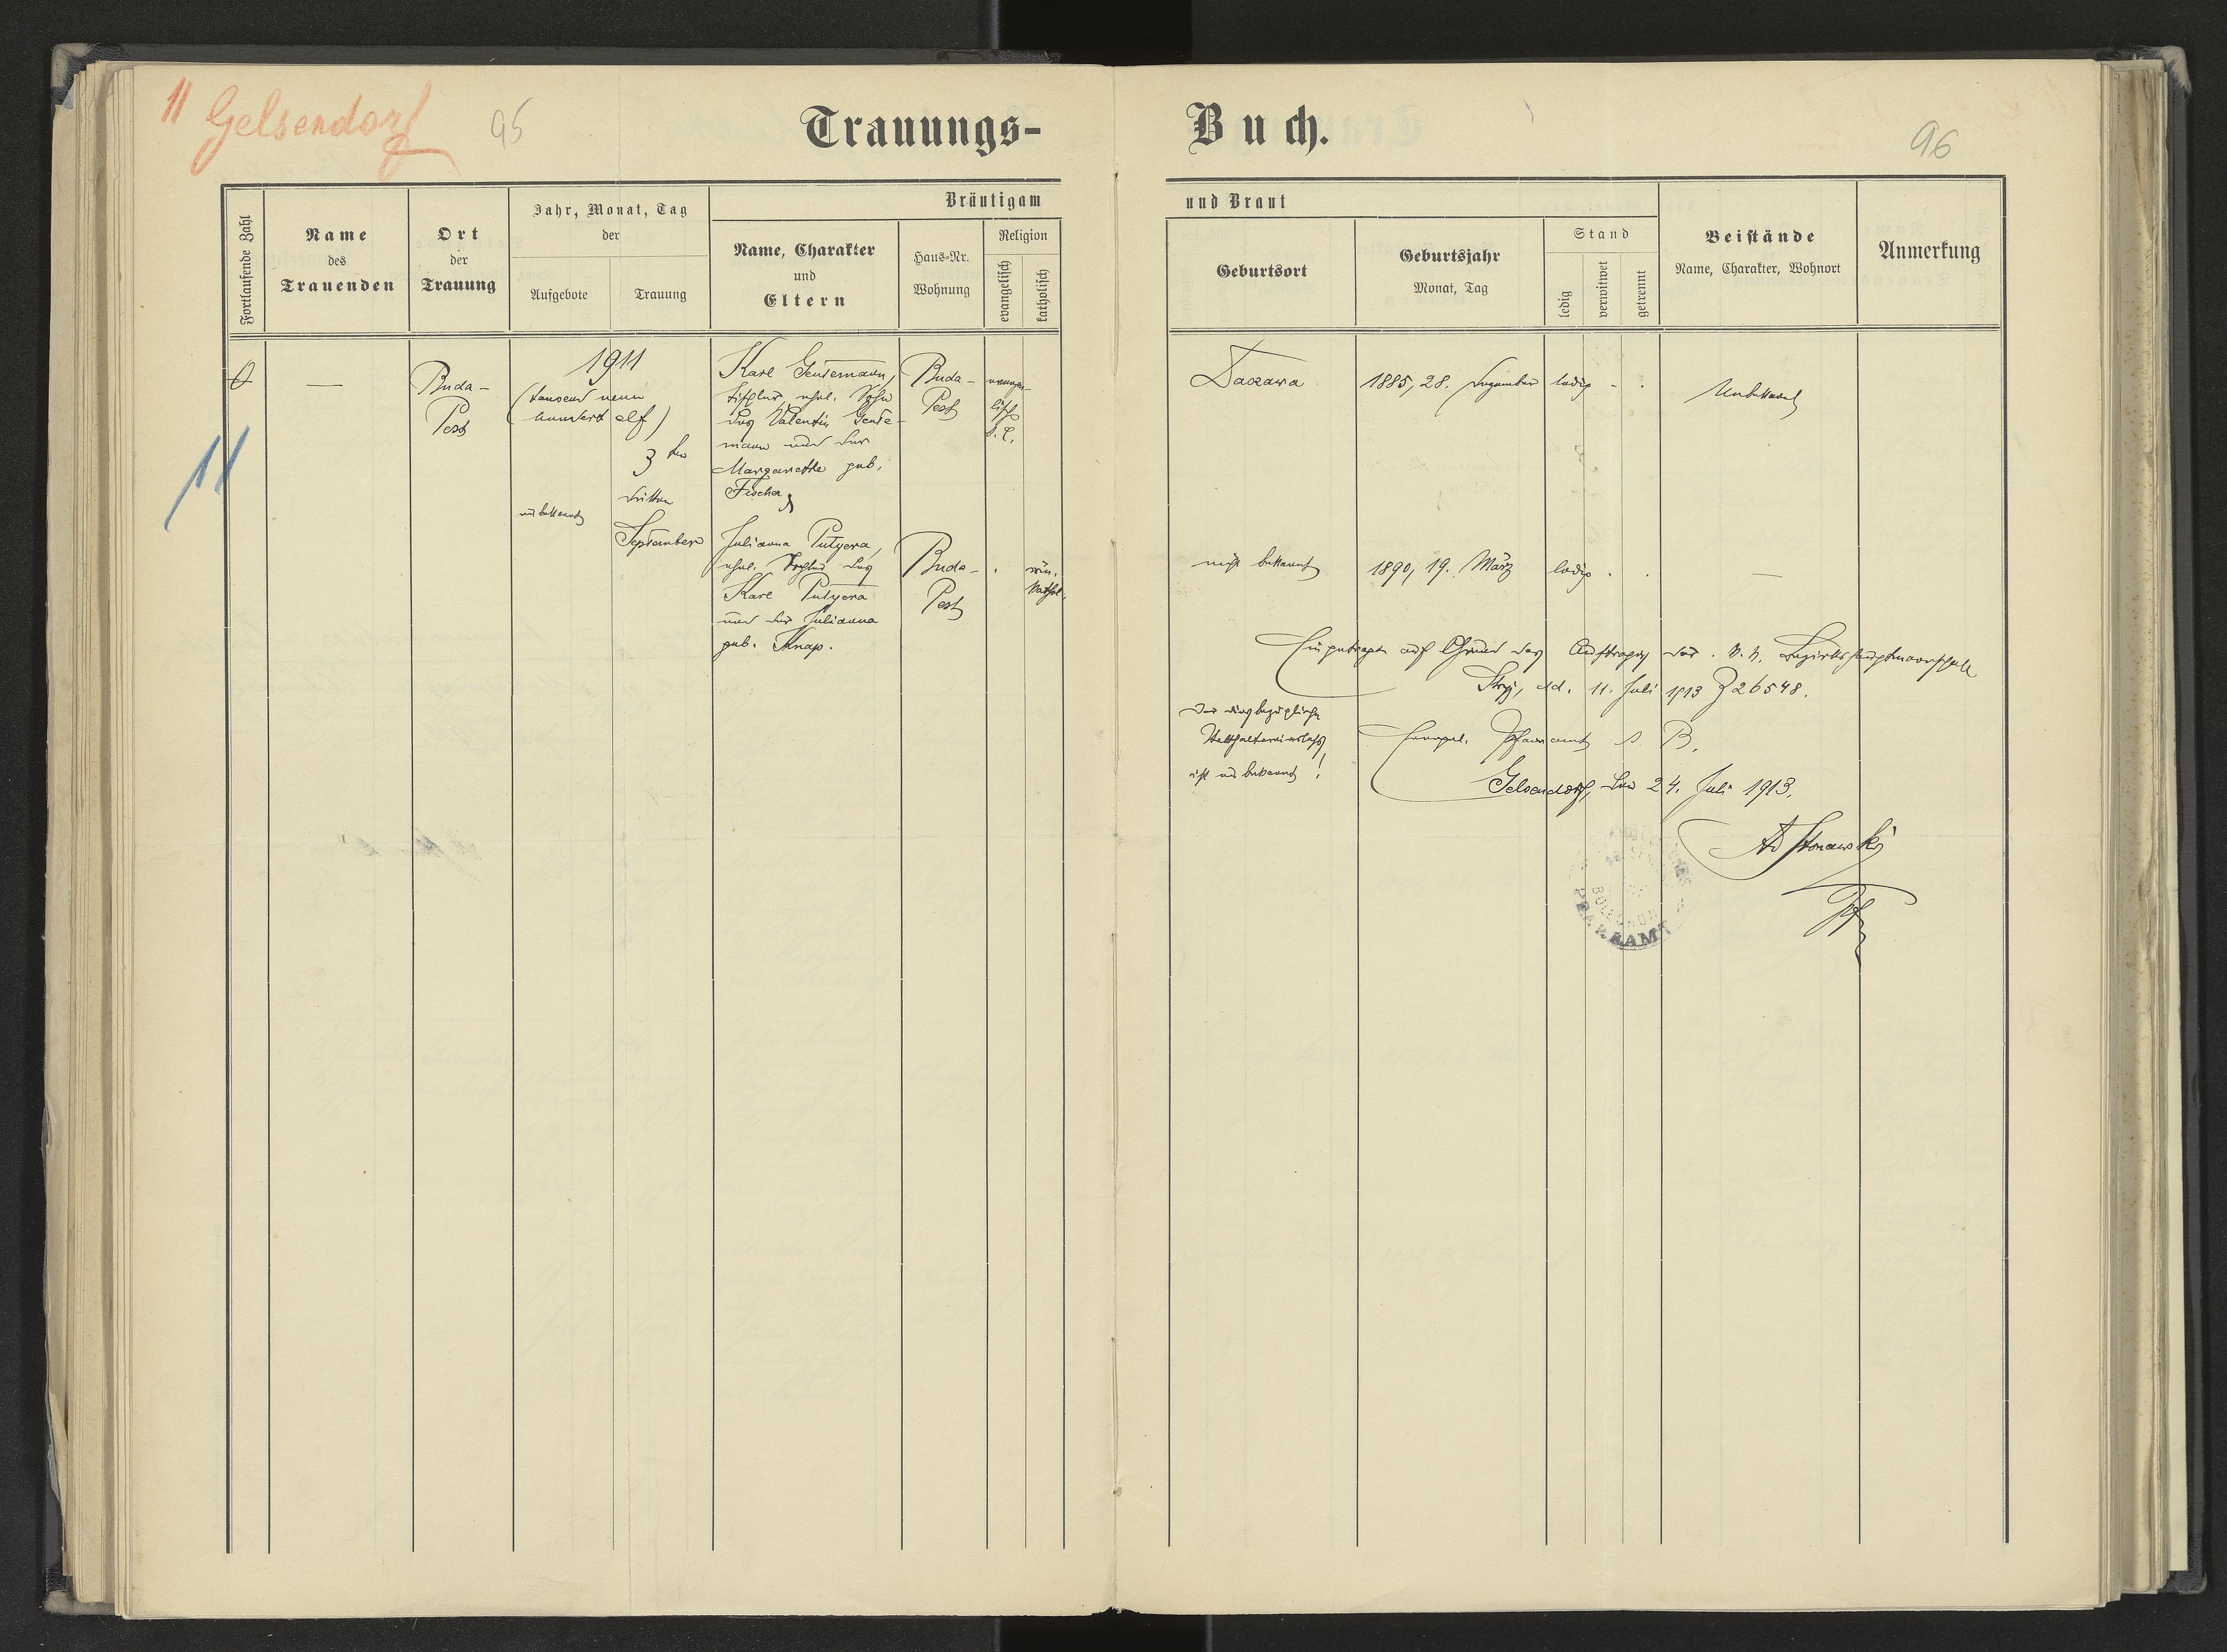 11 Gelsendorf
95
Trauungs-
Buch.
96
Fortlaufende Zahl
Name
des
Trauenden
Ort
der
Trauung
Jahr, Monat, Tag
der
Aufgebote
Trauung
Bräutigam
Name, Charakter
und
Eltern
Haus-Nr.
Wohnung
Religion
evangelisch
katholisch
und Braut
Geburtsort
Geburtsjahr
Monat, Tag
Stand
ledig
verwitwet
getrennt
Beistände
Name, Charakter, Wohnort
Anmerkung
0
11
—
Buda-
Pest
1911
(tausend neun
hundert elf)
3ten
dritten
September
unbekannt
Karl Gensemann,
Tischler, ehel. Sohn
des Valentin Gense-
mann und der
Margarethe geb.
Fischer
Buda-
Pest
evange-
lisch
Dazawa
1885, 28. Dezember
ledig
Unbekannt
Julianna Putyera,
ehel. Tochter des
Karl Putyera
und der Julianna
geb. Knap.
Buda-
Pest
röm.
kathol.
nicht bekannt
1890, 19. März
ledig
—
Eingetragen auf Grund des Auftrages der k. k. Bezirkshauptmannschaft
Stryj, dd. 11. Juli 1913 Z 26548.
Der diesbezügliche
Statthaltereierlass
ist unbekannt!
Evangel. Pfarramt A. B.
Gelsendorf, den 24. Juli 1913.
Pfr
PFARRAMT